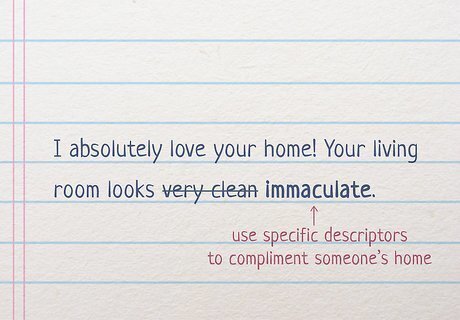 I absolutely love your home! Your living
room looks very clean immaculate.
use specific descriptors
to compliment someone's home